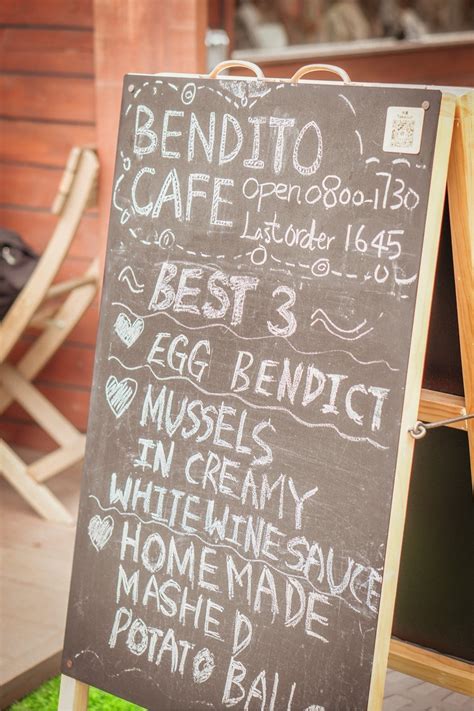 BENDITO
CAFE Open 0800-1730
Last order 1645
BEST 3
EGG BENDICT
MUSSELS
IN CREAMY
WHITE WINE SAUCE
HOMEMADE
MASHED
POTATO BALL